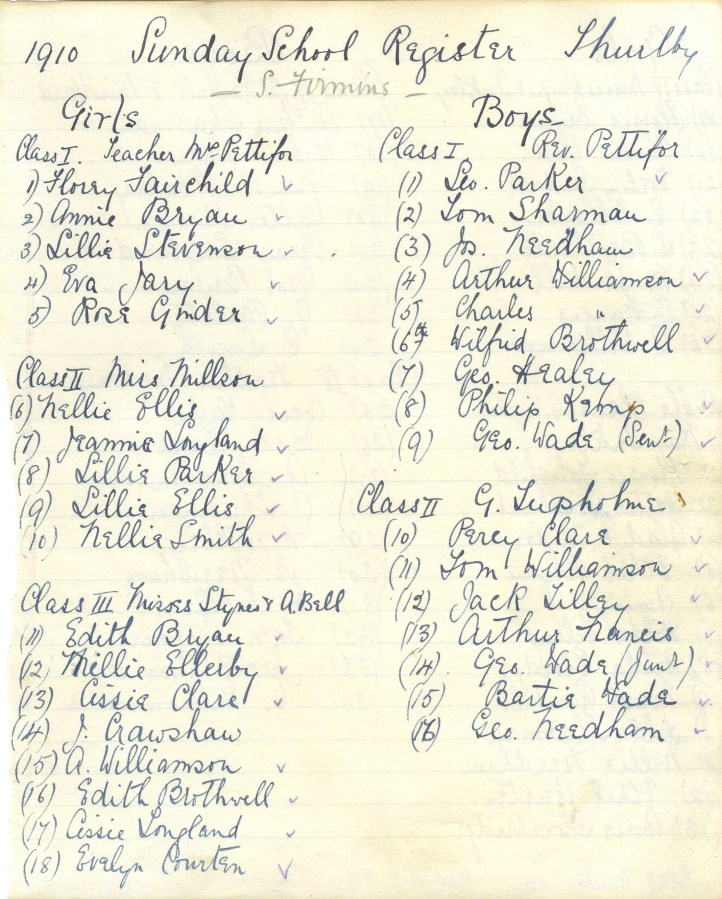 1910 Sunday School Register Thurlby
— S. Firmins —
Girls
Class I. Teacher Mrs Pettifor
1) Florey Fairchild ✓
2) Annie Bryan ✓
3) Lillie Stevenson ✓
4) Eva Jary ✓
5) Rose Ginder ✓
Class II Miss Millson
(6) Nellie Ellis ✓
(7) Jeannie Longland ✓
(8) Lillie Parker ✓
(9) Lillie Ellis ✓
(10) Nellie Smith ✓
Class III Misses Stynes & A. Bell
(11) Edith Bryan ✓
(12) Nellie Ellerby ✓
(13) Cissie Clare ✓
(14) J. Crawshaw
(15) A. Williamson ✓
(16) Edith Brothwell ✓
(17) Cissie Longland ✓
(18) Evelyn Courten ✓
Boys
Class I Rev. Pettifor
(1) Geo. Parker ✓
(2) Tom Sharman
(3) Jos. Needham
(4) Arthur Williamson ✓
(5) Charles " ✓
(6) Wilfrid Brothwell ✓
(7) Geo. Healey
(8) Philip Kemp ✓
(9) Geo. Wade (Senr) ✓
Class II G. Tupholme
(10) Percy Clare ✓
(11) Tom Williamson ✓
(12) Jack Lilley ✓
(13) Arthur Francis ✓
(14) Geo. Wade (Junr) ✓
(15) Bartie Wade ✓
(16) Geo. Needham ✓